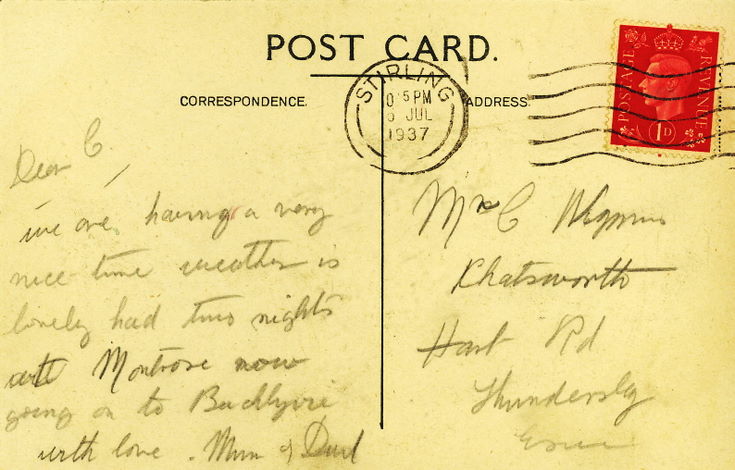 POST CARD.
CORRESPONDENCE.
ADDRESS.
STIRLING
5 PM
JUL
1937
POSTAGE
REVENUE
1D
Dear C,
we are having a very
nice time weather is
lovely had two nights
with Montrose now
going on to
with love. Mum & Dad
Mr C
Chatsworth
Hart Rd
Thundersley
Essex